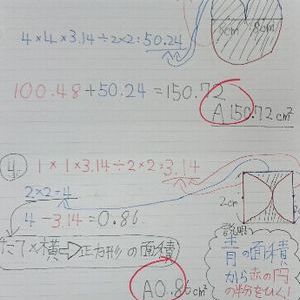 4×4×3.14÷2×2=50.24
8cm 8cm
100.48+50.24=150.72
A 150.72cm²
④ 1×1×3.14÷2×2=3.14
2×2=4
4-3.14=0.86
たて×横⇒正方形の面積
A 0.86cm²
2cm
説明
の面積
から赤の円
の分をひく!